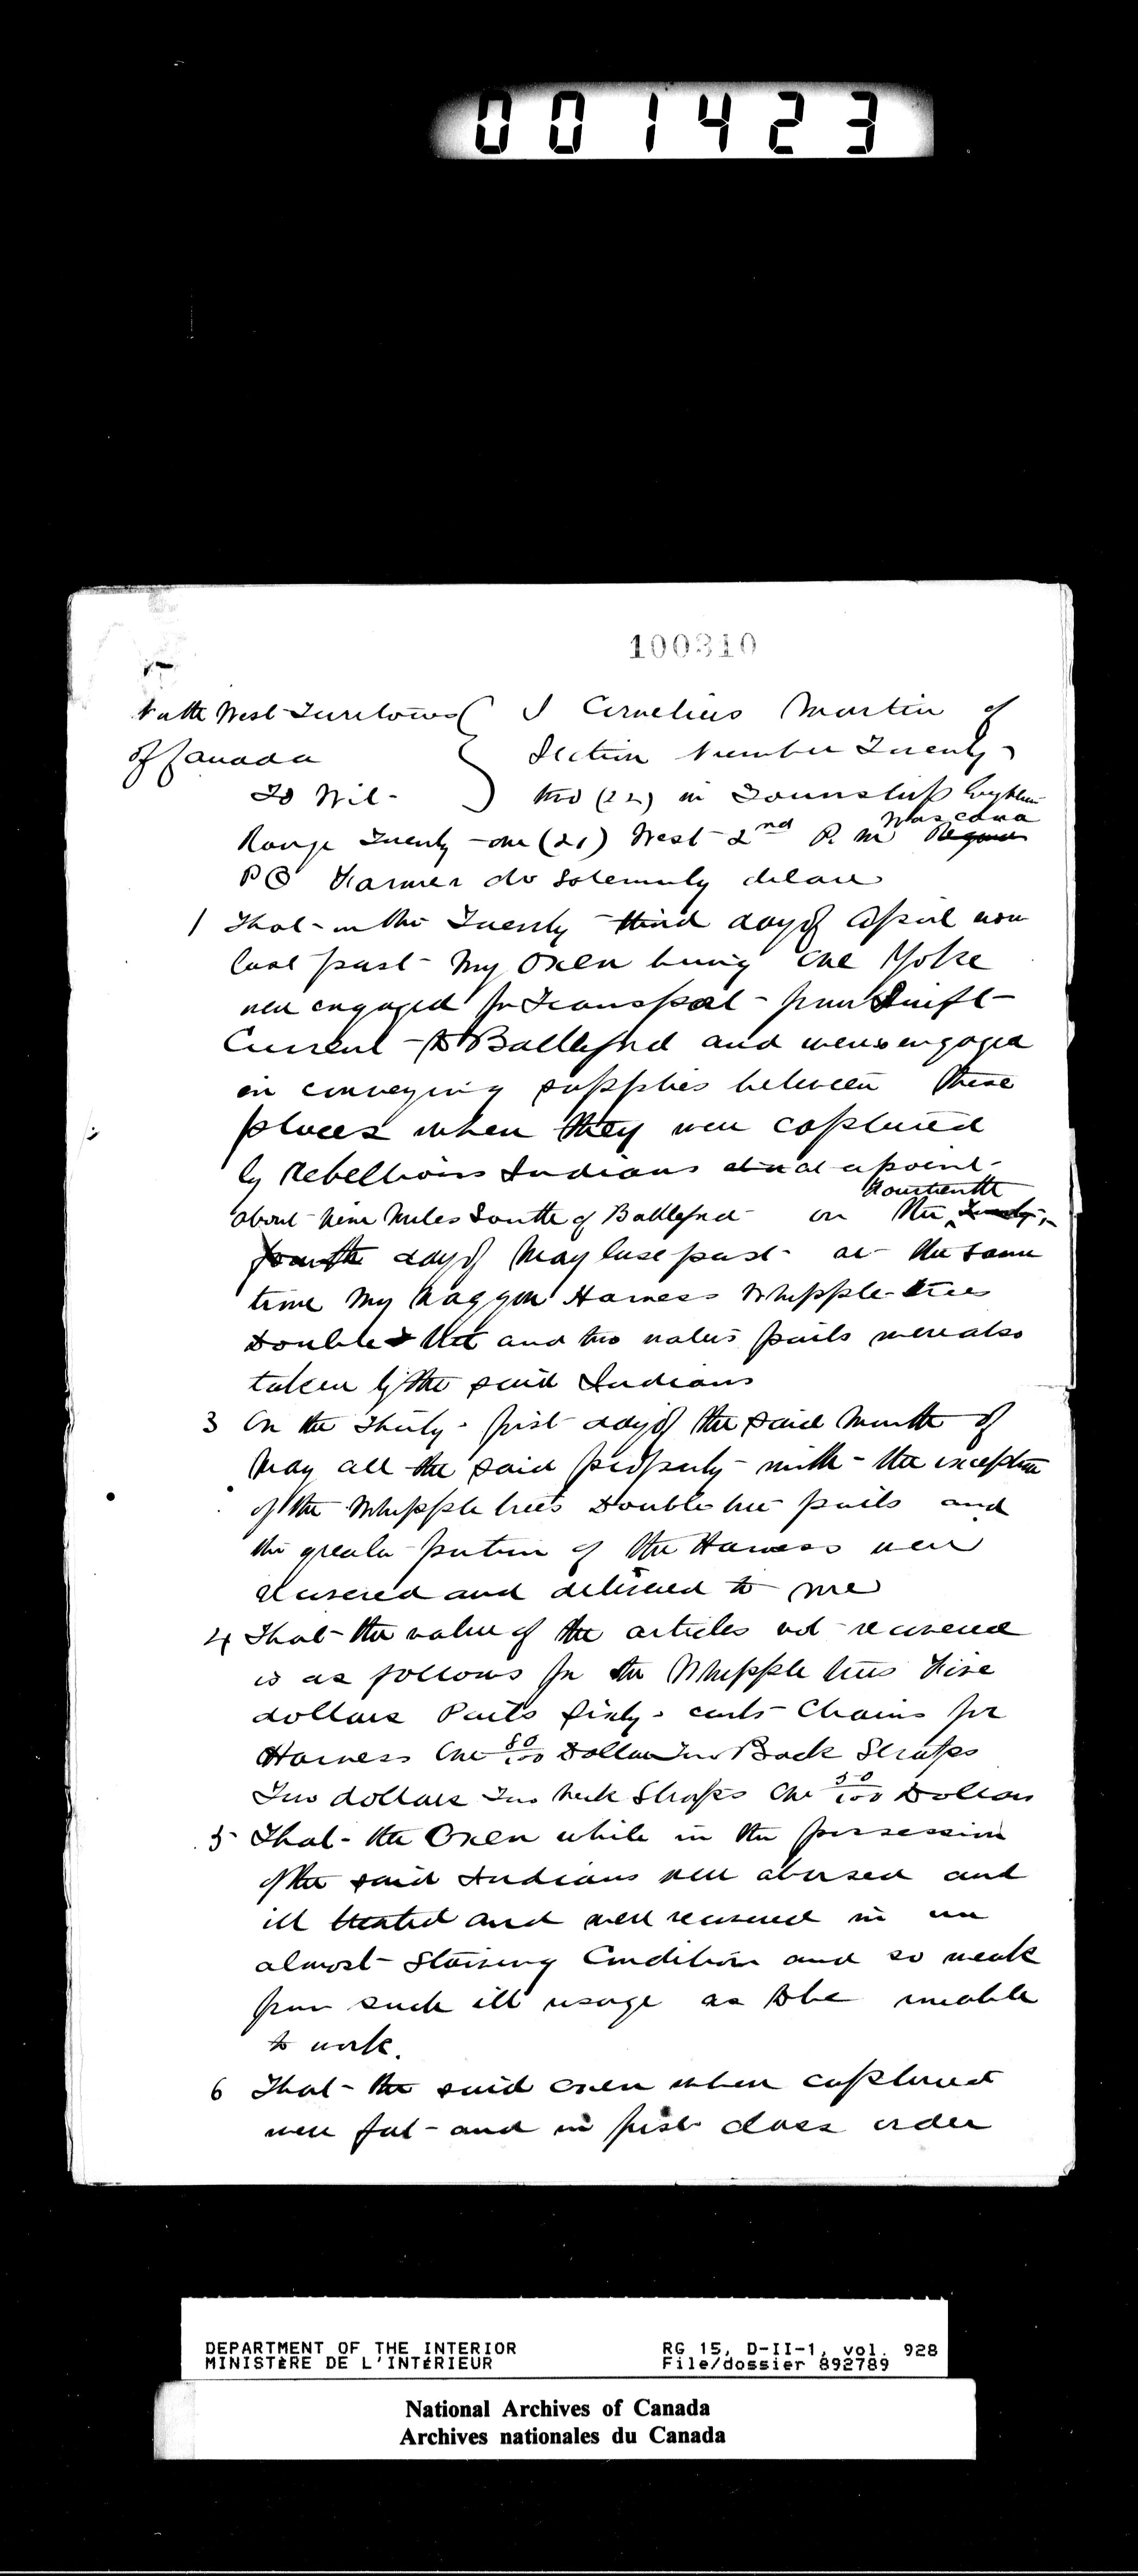 001423
100310
North West Territories { I Cornelius Martin of
of Canada Section Number Twenty-
To Wit- two (22) in Township Eighteen
Wascana
Range Twenty-one (21) West 2nd P. M. Regina
P O Farmer do solemnly declare
1 That on the Twenty-third day of April now
last past my Oxen being one Yoke
were engaged for Transport from Swift
Current to Battleford and were engaged
in conveying supplies between these
places when they were captured
by Rebellious Indians at a point
Fourteenth
about nine miles South of Battleford on the Twenty-
fourth day of May last past at the same
time my waggon Harness Whipple-trees
Double tree and two water pails were also
taken by the said Indians
3 On the Thirty-first day of the said Month of
May all the said property with the exception
of the Whipple trees Double tree pails and
the greater portion of the Harness were
recovered and delivered to me
4 That the value of the articles not recovered
is as follows For the Whipple trees Five
dollars Pails Sixty cents Chains for
Harness One 80/100 Dollars Two Back Straps
Two dollars Two Neck Straps One 50/100 Dollars
5 That the Oxen while in the possession
of the said Indians were abused and
ill treated and were recovered in an
almost Starving Condition and so weak
from such ill usage as to be unable
to work.
6 That the said oxen when captured
were fat and in first class order
DEPARTMENT OF THE INTERIOR RG 15, D-II-1, vol. 928
MINISTÈRE DE L'INTÉRIEUR File/dossier 892789
National Archives of Canada
Archives nationales du Canada